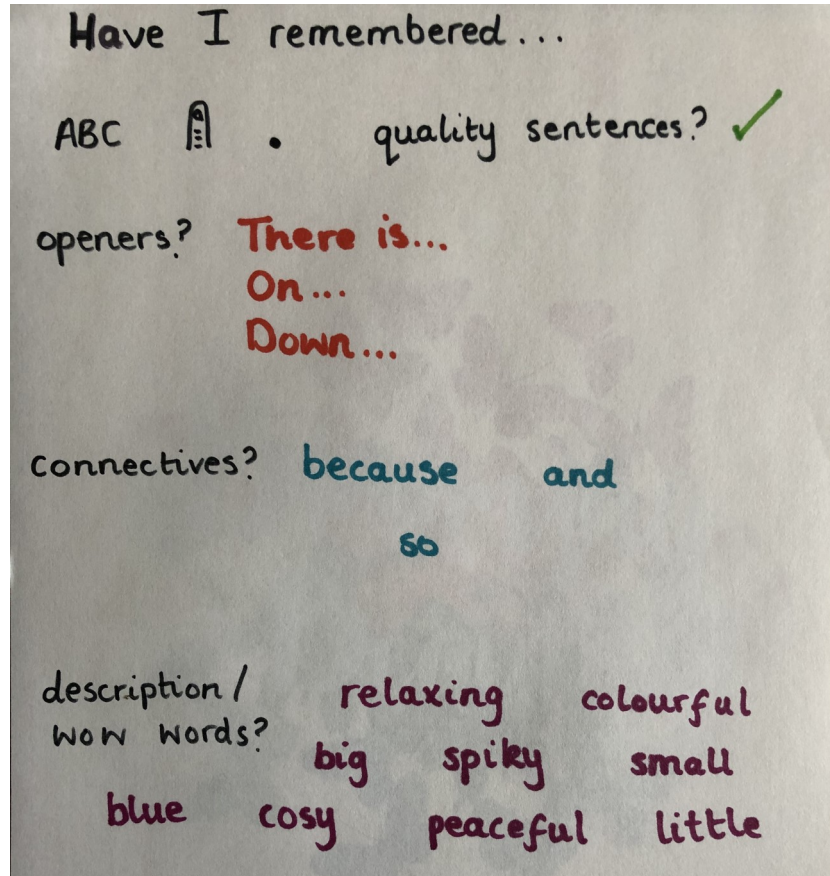 Have I remembered...
ABC . quality sentences? ✓
openers? There is...
On...
Down...
connectives? because and
so
description/ relaxing colourful
wow words?
big spiky small
blue cosy peaceful little